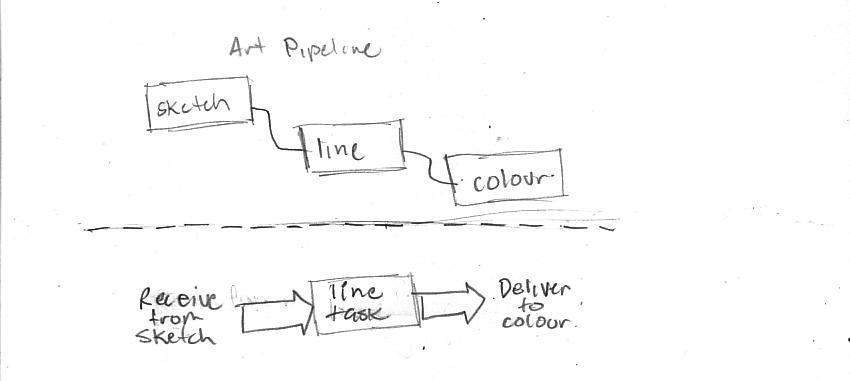 Art Pipeline
sketch
line
colour
Receive
from
sketch
line
task
Deliver
to
colour.